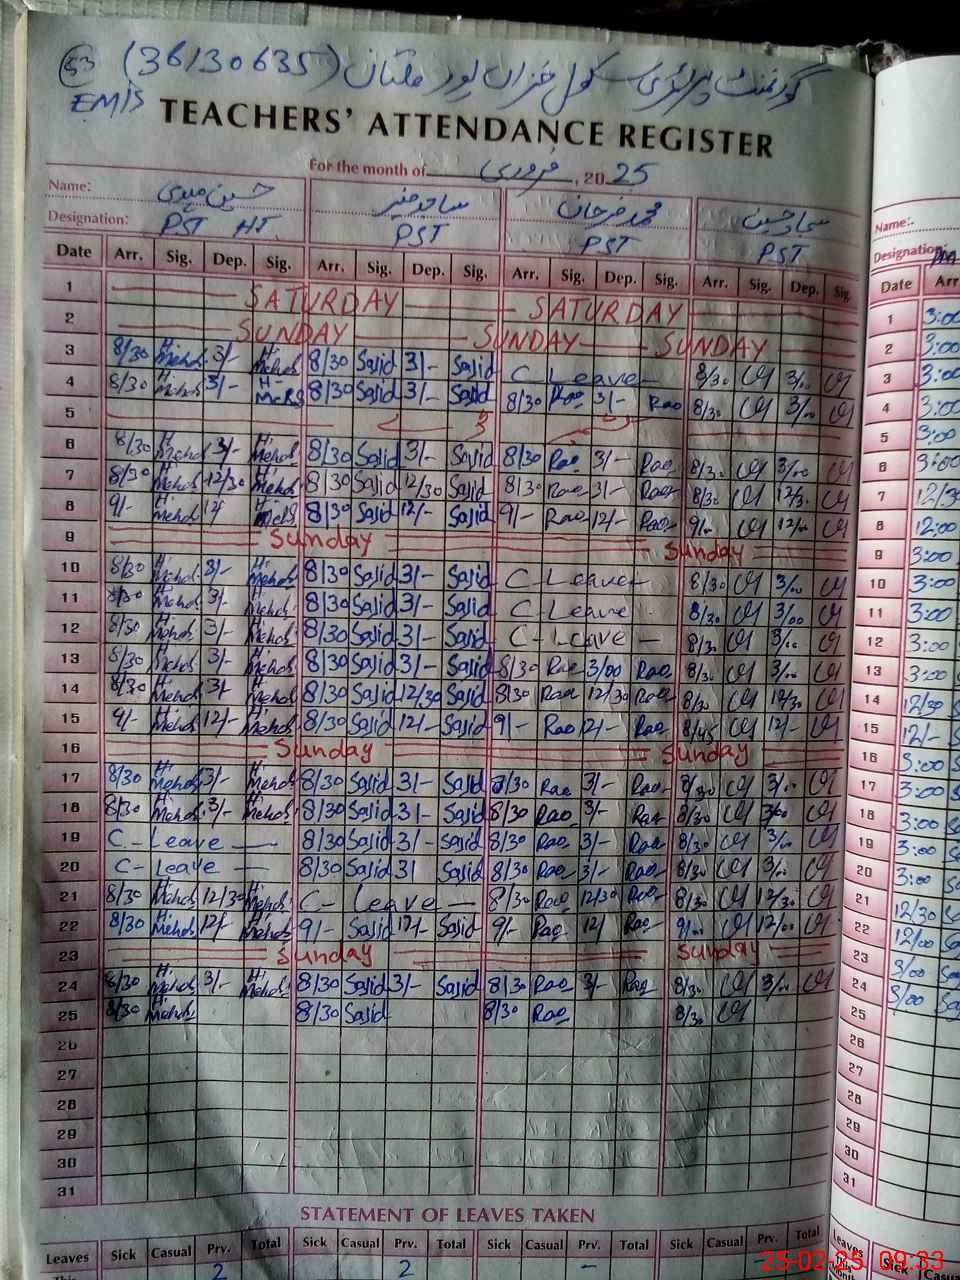 53 (36130635) گورنمنٹ پرائمری سکول خزاں پور ملتان
EMIS
TEACHERS' ATTENDANCE REGISTER
For the month of فروری, 2025
Name: ساجد منیر محمد فرحان سجاد حسین
Designation: PST HT PST PST PST
Date Arr. Sig. Dep. Sig. Arr. Sig. Dep. Sig. Arr. Sig. Dep. Sig. Arr. Sig. Dep. Sig.
1 SATURDAY SATURDAY
2 SUNDAY SUNDAY SUNDAY
3 8/30 H. Mehdi 3/- H. Mehdi 8/30 Sajid 3/- Sajid C Leave 8/30 3/00
4 8/30 H. Mehdi 3/- H. Mehdi 8/30 Sajid 3/- Sajid 8/30 Rao 3/- Rao 8/30 3/00
5
6 8/30 H. Mehdi 3/- H. Mehdi 8/30 Sajid 3/- Sajid 8/30 Rao 3/- Rao 8/30 3/00
7 8/30 H. Mehdi 12/30 H. Mehdi 8/30 Sajid 12/30 Sajid 8/30 Rao 3/- Rao 8/30 12/30
8 9/- H. Mehdi 12/ H. Mehdi 8/30 Sajid 12/- Sajid 9/- Rao 12/- Rao 9/- 12/-
9 Sunday Sunday
10 8/30 H. Mehdi 3/- H. Mehdi 8/30 Sajid 3/- Sajid C-Leave 8/30 3/00
11 8/30 H. Mehdi 3/- H. Mehdi 8/30 Sajid 3/- Sajid C-Leave 8/30 3/00
12 8/30 H. Mehdi 3/- H. Mehdi 8/30 Sajid 3/- Sajid C-Leave 8/30 3/00
13 8/30 H. Mehdi 3/- H. Mehdi 8/30 Sajid 3/- Sajid 8/30 Rao 3/00 Rao 8/30 3/00
14 8/30 H. Mehdi 3/- H. Mehdi 8/30 Sajid 12/30 Sajid 8/30 Rao 12/30 Rao 8/30 12/30
15 9/- H. Mehdi 12/- H. Mehdi 8/30 Sajid 12/- Sajid 9/- Rao 12/- Rao 8/45 12/-
16 Sunday Sunday
17 8/30 H. Mehdi 3/- H. Mehdi 8/30 Sajid 3/- Sajid 8/30 Rao 3/- Rao 8/30 3/00
18 8/30 H. Mehdi 3/- H. Mehdi 8/30 Sajid 3/- Sajid 8/30 Rao 3/- Rao 8/30 3/00
19 C-Leave 8/30 Sajid 3/- Sajid 8/30 Rao 3/- Rao 8/30 3/00
20 C-Leave 8/30 Sajid 3/ Sajid 8/30 Rao 3/- Rao 8/30 3/00
21 8/30 H. Mehdi 12/30 H. Mehdi C-Leave 8/30 Rao 12/30 Rao 8/30 12/30
22 8/30 H. Mehdi 12/- H. Mehdi 9/- Sajid 12/- Sajid 9/- Rao 12/ Rao 9/00 12/00
23 Sunday Sunday
24 8/30 H. Mehdi 3/- H. Mehdi 8/30 Sajid 3/- Sajid 8/30 Rao 3/- Rao 8/30 3/00
25 8/30 H. Mehdi 8/30 Sajid 8/30 Rao 8/30
26
27
28
29
30
31
STATEMENT OF LEAVES TAKEN
Leaves Sick Casual Prv. Total Sick Casual Prv. Total Sick Casual Prv. Total Sick Casual Prv. Total
This 2 2 -
Name:
Designation:
Date Arr
1 3:00
2 3:00
3 3:00
4 3:00
5 3:00
6 3:00
7 12/30
8 12:00
9 3:00
10 3:00
11 3:00
12 3:00
13 3:00
14 12/30
15 12/-
16 3:00
17 3:00
18 3:00
19 3:00
20 3:00
21 12/30
22 12/00
23 3/00
24 3/00
25
26
27
28
29
30
31
Leaves Sick
25-02-25 09:33